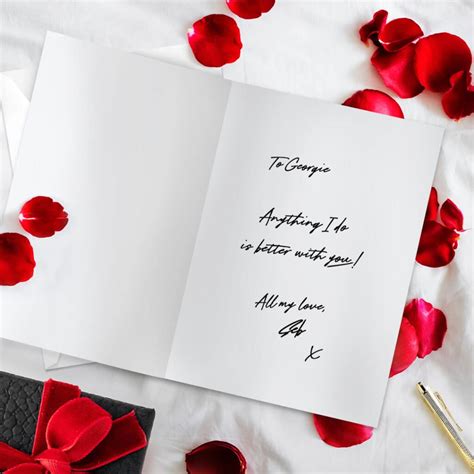 To Georgie
Anything I do
is better with you!
All my love,
Seb
X